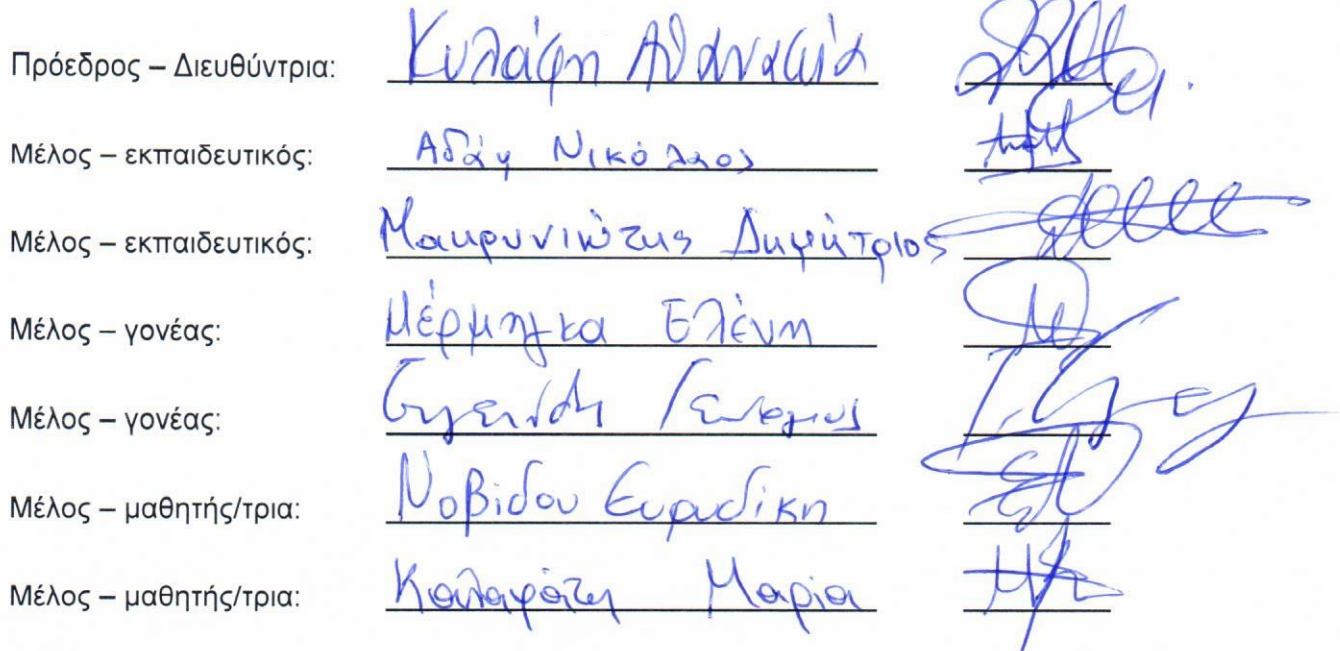 Πρόεδρος – Διευθύντρια: Κυλάφη Αθανασία
Μέλος – εκπαιδευτικός: Αδάμ Νικόλαος
Μέλος – εκπαιδευτικός: Μακρυνιώτης Δημήτριος
Μέλος – γονέας: Μέρμηγκα Ελένη
Μέλος – γονέας:
Μέλος – μαθητής/τρια: Νοβίδου Ευρυδίκη
Μέλος – μαθητής/τρια: Καλαφάτη Μαρία